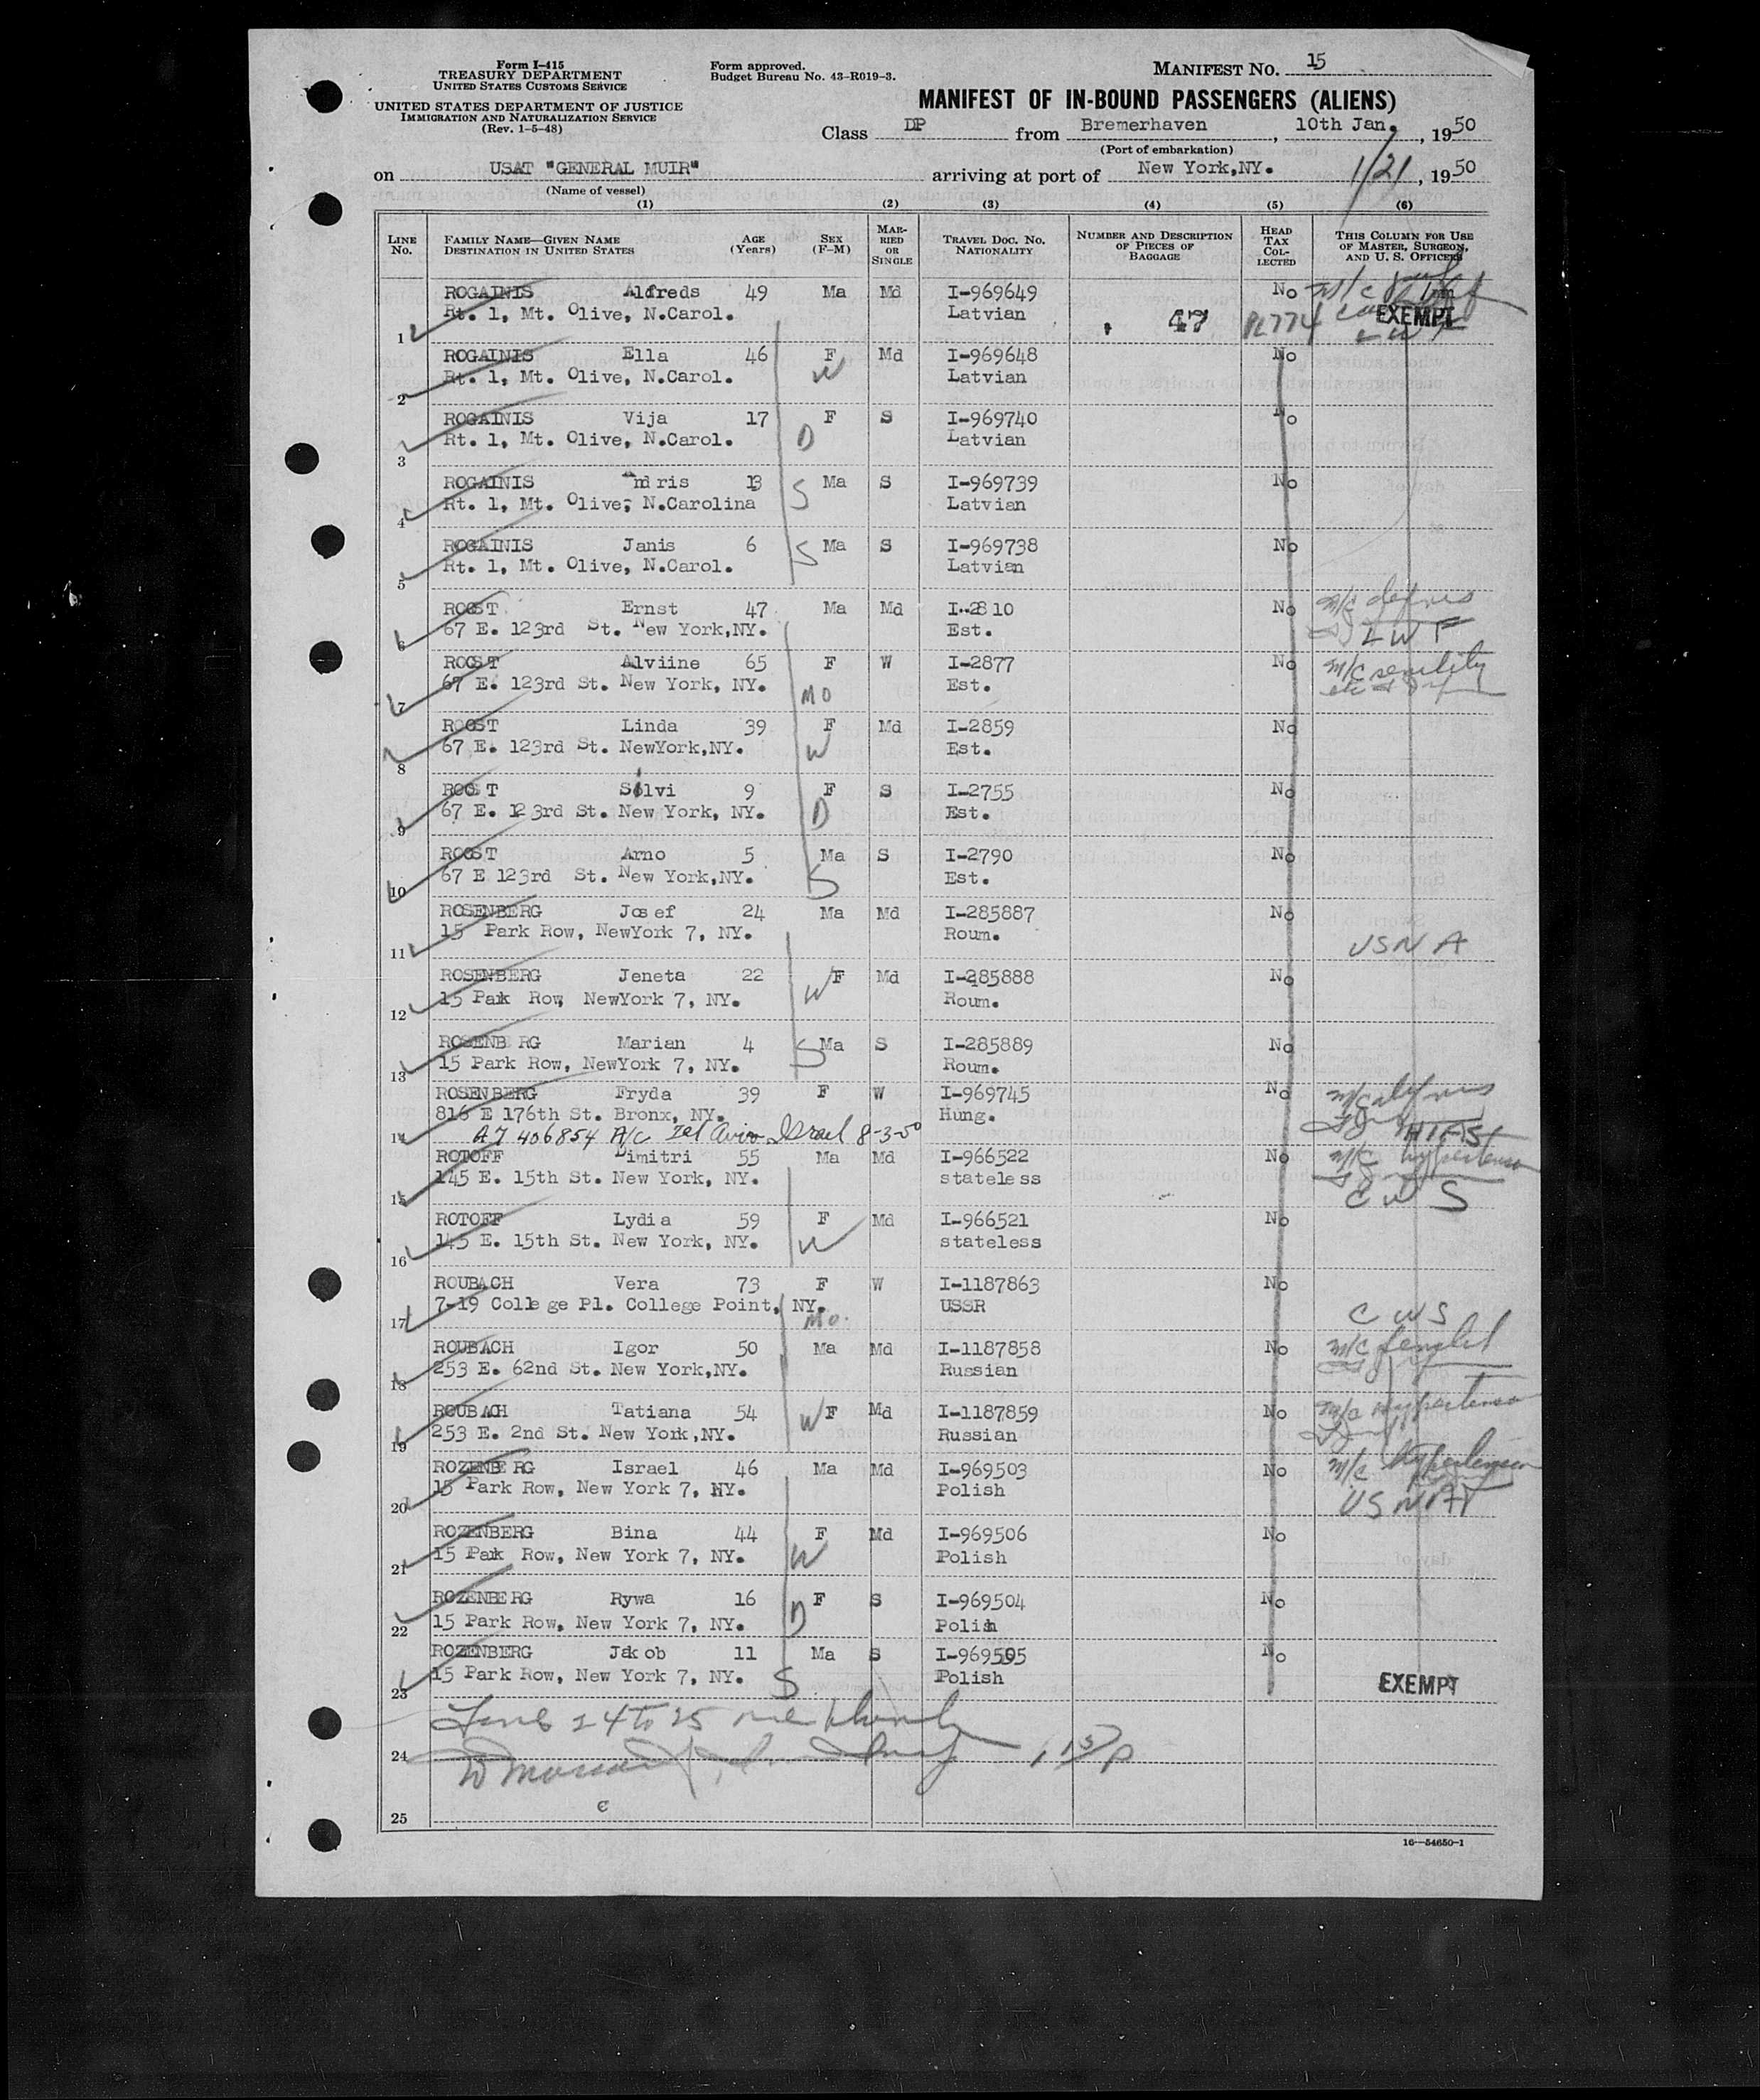 Form I-415
TREASURY DEPARTMENT
UNITED STATES CUSTOMS SERVICE
UNITED STATES DEPARTMENT OF JUSTICE
IMMIGRATION AND NATURALIZATION SERVICE
(Rev. 1-5-48)
Form approved.
Budget Bureau No. 43-R019-3.
MANIFEST NO. 15
MANIFEST OF IN-BOUND PASSENGERS (ALIENS)
Class DP from Bremerhaven, 10th Jan., 1950
(Port of embarkation)
on USAT "GENERAL MUIR" arriving at port of New York,NY. 1/21, 1950
(Name of vessel)
(1) (2) (3) (4) (5) (6)
LINE NO. FAMILY NAME—GIVEN NAME DESTINATION IN UNITED STATES AGE (Years) SEX (F-M) MARRIED OR SINGLE TRAVEL DOC. NO. NATIONALITY NUMBER AND DESCRIPTION OF PIECES OF BAGGAGE HEAD TAX COLLECTED THIS COLUMN FOR USE OF MASTER, SURGEON, AND U. S. OFFICERS
ROGAINIS Aldreds 49 Ma Md I-969649 No m/c
1 Rt. 1, Mt. Olive, N.Carol. Latvian 47 PL774 EXEMPT LWF
ROGAINIS Ella 46 F Md I-969648 No
2 Rt. 1, Mt. Olive, N.Carol. W Latvian
ROGAINIS Vija 17 F S I-969740 No
3 Rt. 1, Mt. Olive, N.Carol. D Latvian
ROGAINIS Andris 13 Ma S I-969739 No
4 Rt. 1, Mt. Olive, N.Carolina S Latvian
ROGAINIS Janis 6 Ma S I-969738 No
5 Rt. 1, Mt. Olive, N.Carol. S Latvian
ROOST Ernst 47 Ma Md I-2810 No m/c
6 67 E. 123rd St. New York,NY. Est. LWF
ROOST Alviine 65 F W I-2877 No m/c senility
7 67 E. 123rd St. New York, NY. MO Est.
ROOST Linda 39 F Md I-2859 No
8 67 E. 123rd St. NewYork,NY. W Est.
ROOST Silvi 9 F S I-2755 No
9 67 E. 123rd St. New York, NY. D Est.
ROOST Arno 5 Ma S I-2790 No
10 67 E 123rd St. New York,NY. S Est.
ROSENBERG Josef 24 Ma Md I-285887 No
11 15 Park Row, NewYork 7, NY. Roum. USNA
ROSENBERG Jeneta 22 F Md I-285888 No
12 15 Park Row, NewYork 7, NY. W Roum.
ROSENBERG Marian 4 S Ma S I-285889 No
13 15 Park Row, NewYork 7, NY. Roum.
ROSENBERG Fryda 39 F W I-969745 No m/c
816 E 176th St. Bronx, NY. Hung.
14 A7 406854 A/C Tel Aviv Israel 8-3-50 HIAS
ROTOFF Dimitri 55 Ma Md I-966522 No m/c hypertension
15 145 E. 15th St. New York, NY. stateless CWS
ROTOFF Lydia 59 F Md I-966521 No
16 145 E. 15th St. New York, NY. W stateless
ROUBACH Vera 73 F W I-1187863 No
17 7-19 College Pl. College Point, NY. Mo. USSR CWS
ROUBACH Igor 50 Ma Md I-1187858 No m/c
18 253 E. 62nd St. New York,NY. Russian
ROUBACH Tatiana 54 W F Md I-1187859 No m/c hypertension
19 253 E. 2nd St. New York,NY. Russian
ROZENBERG Israel 46 Ma Md I-969503 No m/c hypertension
20 15 Park Row, New York 7, NY. Polish USNA
ROZENBERG Bina 44 F Md I-969506 No
21 15 Park Row, New York 7, NY. W Polish
ROZENBERG Rywa 16 F S I-969504 No
22 15 Park Row, New York 7, NY. D Polish
ROZENBERG Jakob 11 Ma S I-969505 No
23 15 Park Row, New York 7, NY. S Polish EXEMPT
Lines 24 to 25
24
25
16—54650-1